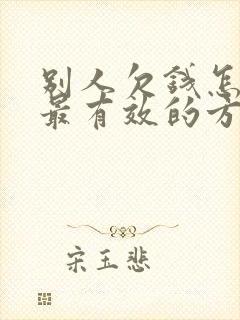 别人欠钱怎
最有效的方
宋玉悲